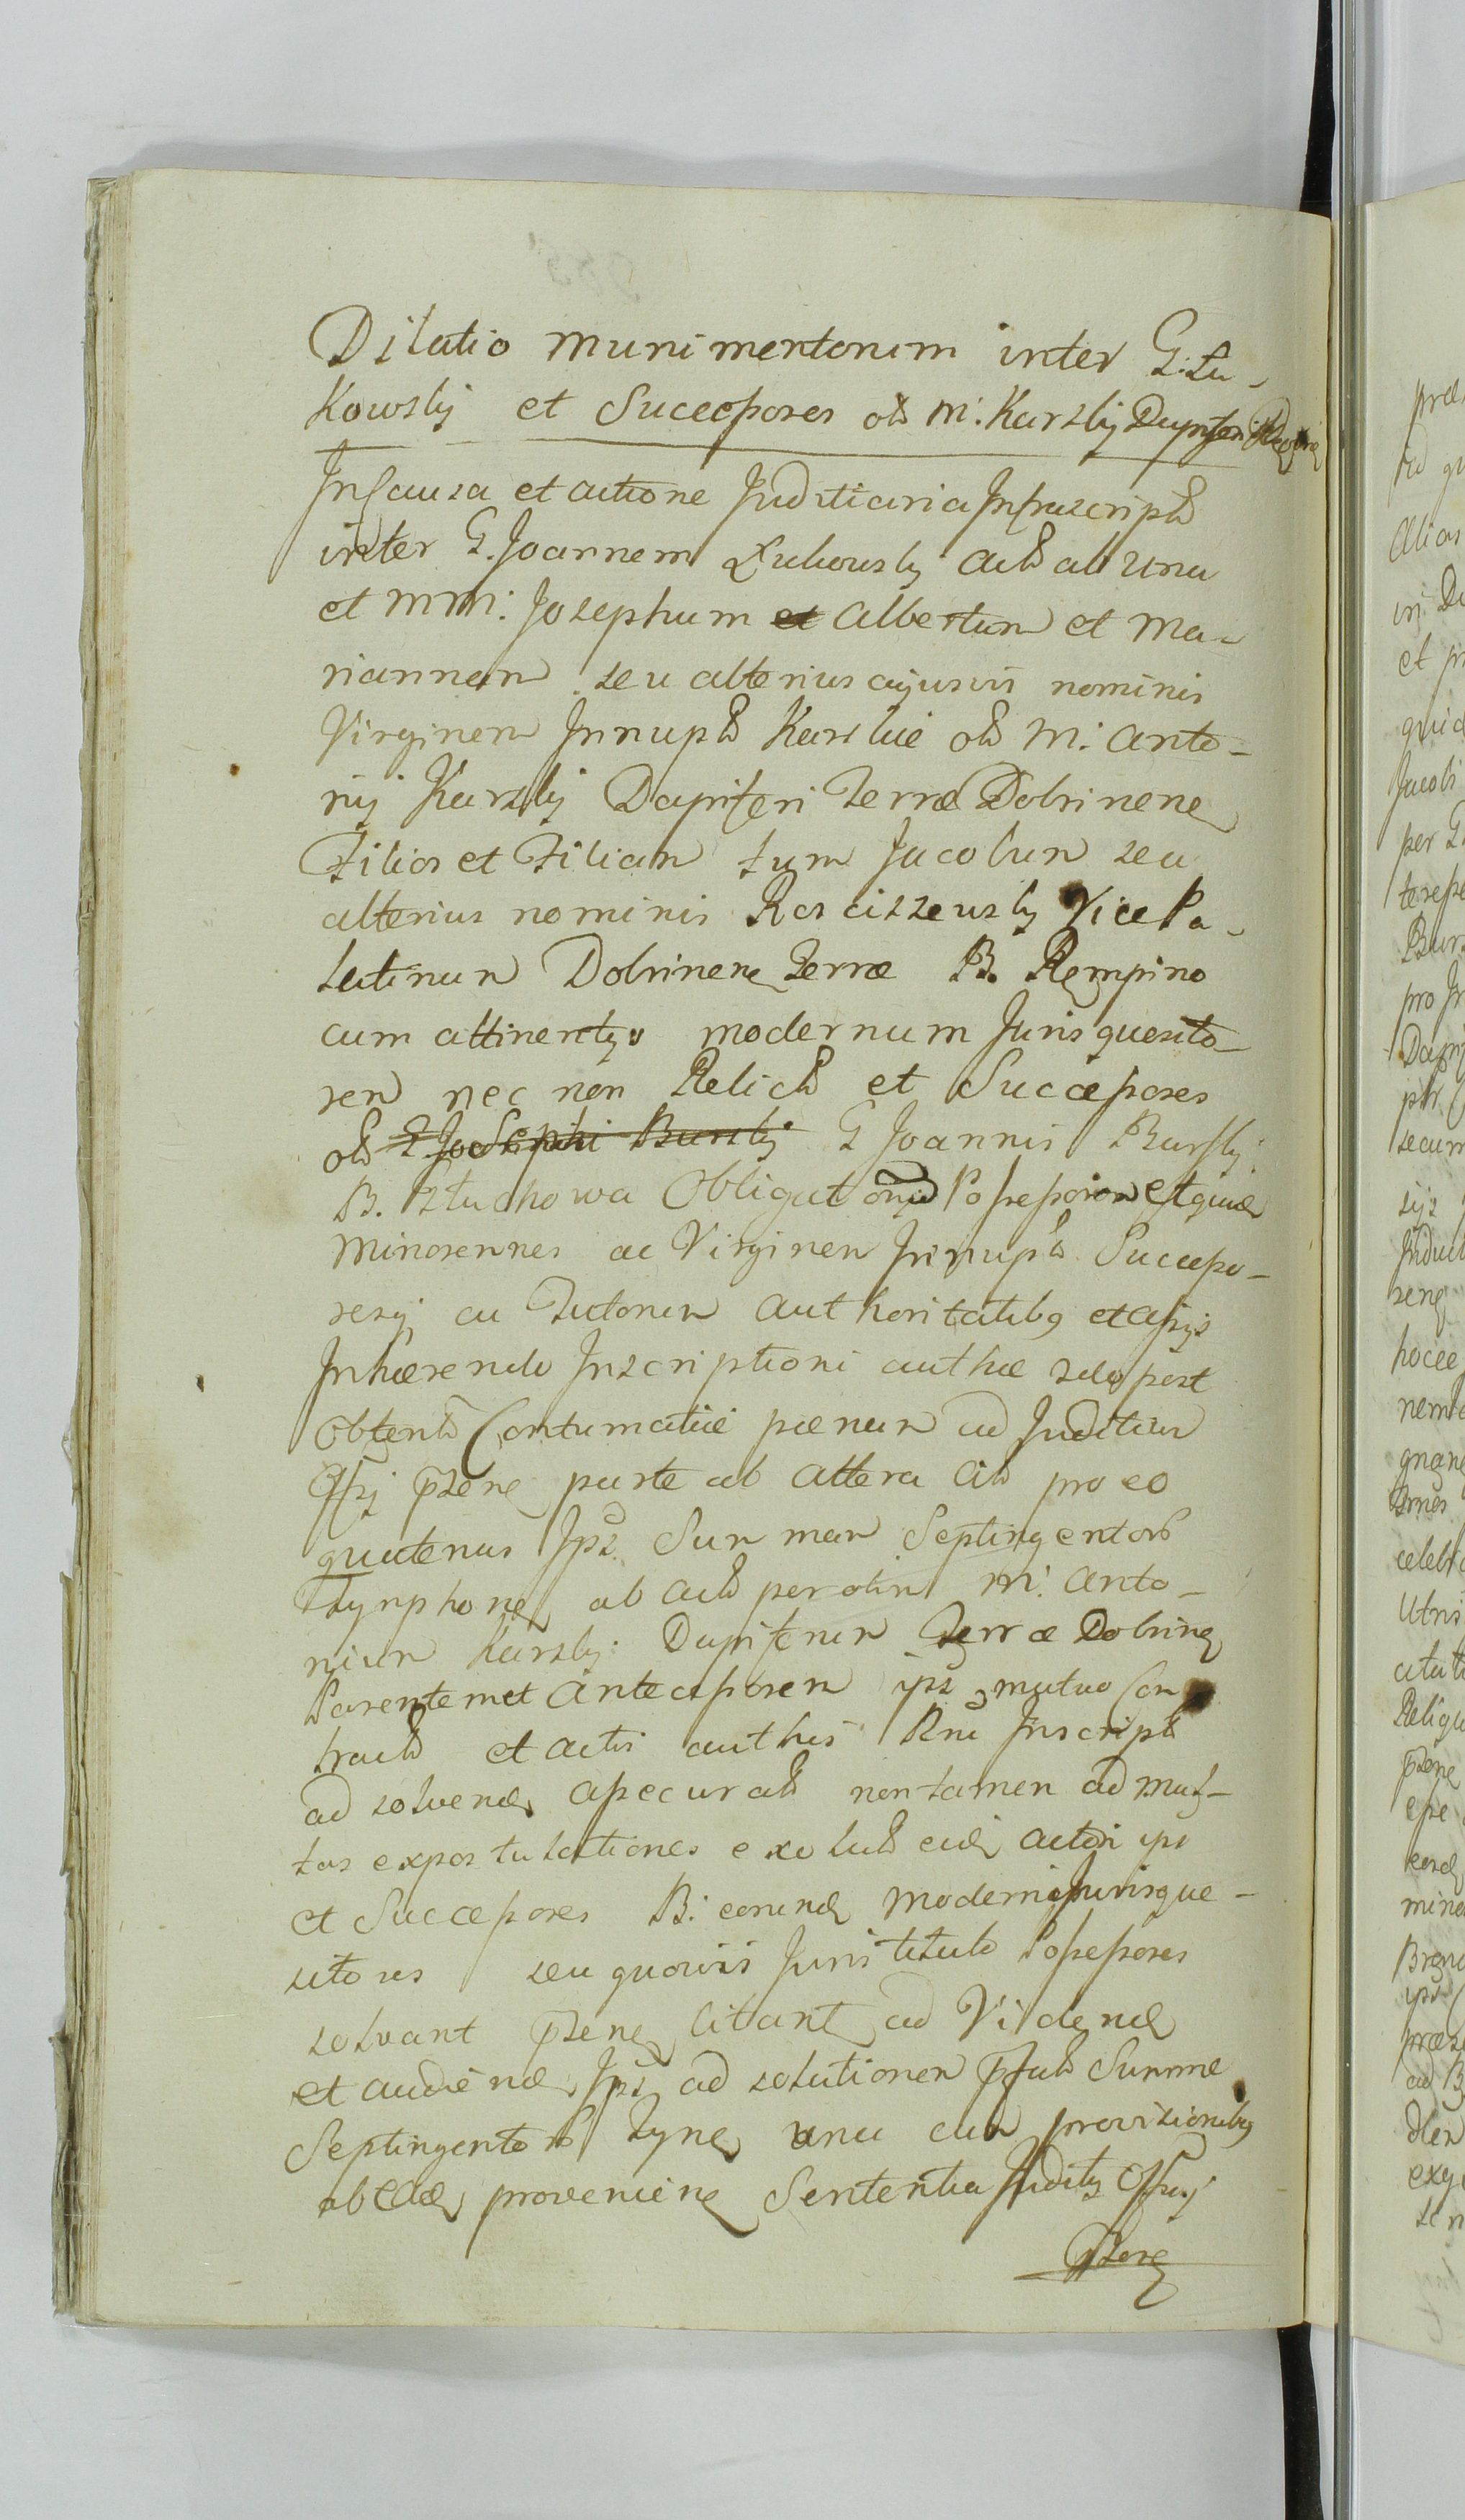 Dilatio munimentorum inter G: Lu-
kowsky et Successores olim M: Karsky Dapiferi
In Causa et actione Juditiaria Infrascripta
inter G. Joannem Lukowsky act ab una
et MM: Josephum et Albertum et Ma-
riannam seu alterius cujusvis nominis
Virginem Innupt Karskie olim M: Anto-
nij Karskij Dapiferi Terræ Dobrinen
Filios et Filiam tum Jacobum seu
alterius nominis Rosciszewsky Vice Pa-
latinum Dobrinen Terræ B. Rempino
cum attinentys modernum Jurisquesito-
rem nec non Relict et Successores
olim G. Josephi Bursky G Joannis Bursky
B. Obligat Possessorem
Minorennes ac Virginem Innupt Successo-
resq cu Tutorum Authoritatibq et
Inhærendo Inscriptioni
Obtent Contumatiæ pænam ad Juditium
Offij pzens parte ab altera Cit pro eo
quatenus Ips Summam Septingentor
Tynphone ab act per olim M: Anto-
nium Karsky Dapiferum Terræ Dobrine
Parentem et Antecessorem ips mutuo Con
tract et actis authis Rni Inscript
ad solvend assecurat non tamen ad mul-
tas expostulationes exolut eid actori ips
et Successores B: eorund moderni Jurisque-
sitores seu quovis Juris titulo Possessores
solvant pzens Citant ad Vidend
et audiend Ips ad solutionem pfat Summæ
Septingentor Tyne una cum provisionibq
ab ead provenien Sententia Juditÿ Offij
pzens